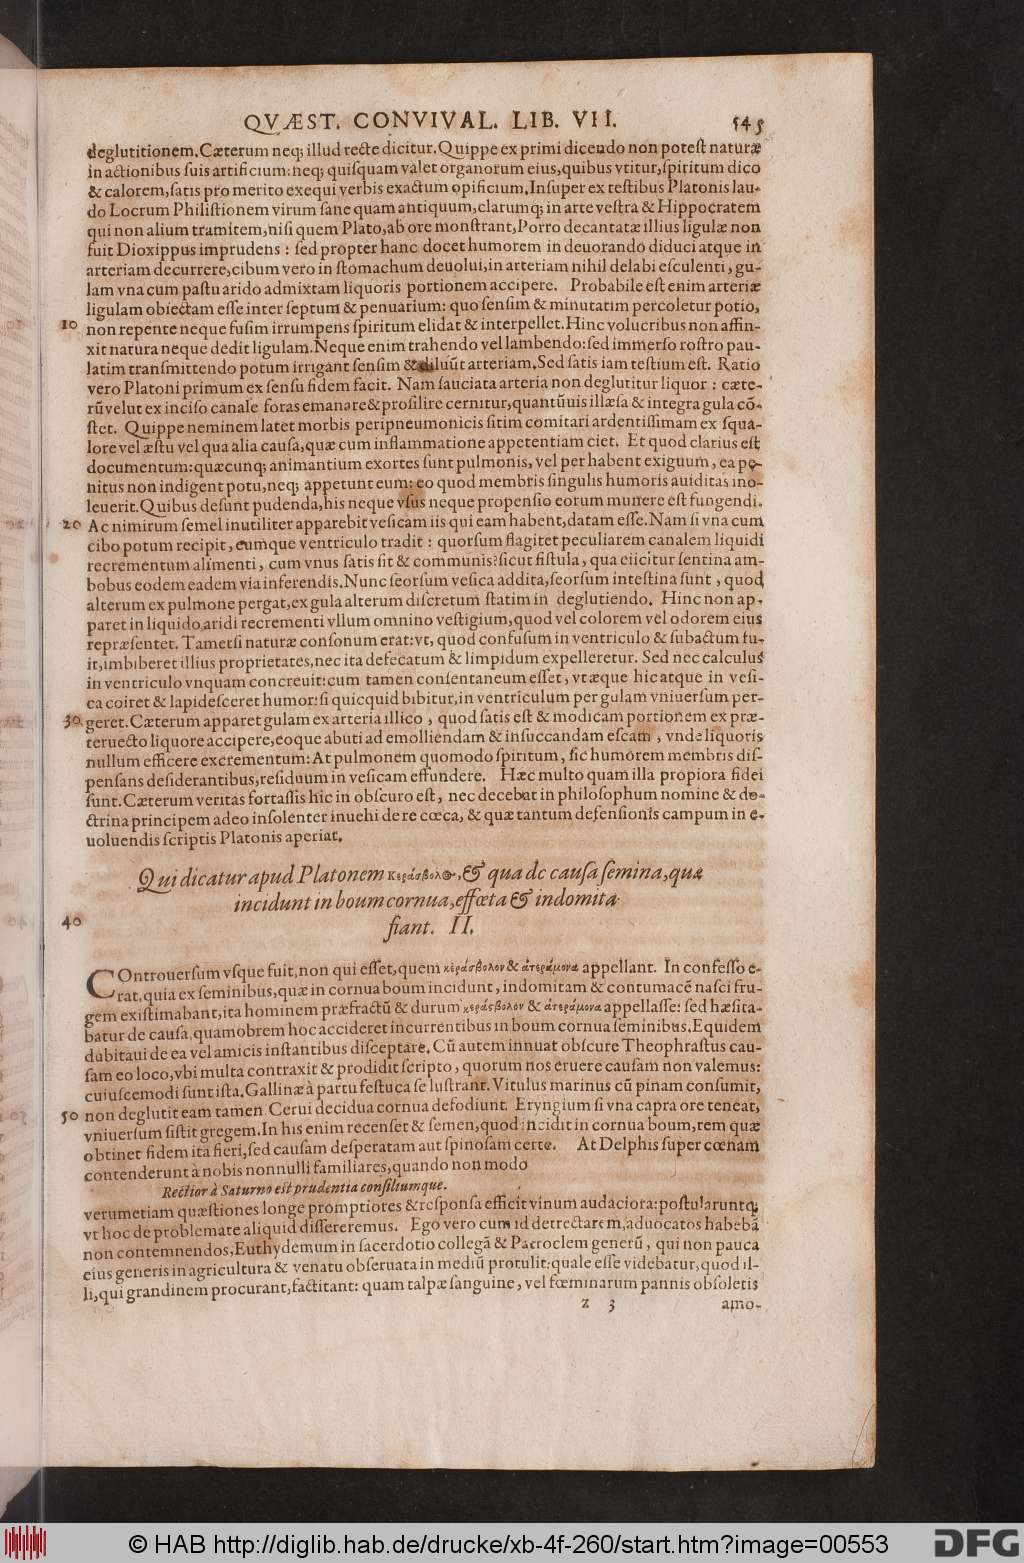 QVÆST. CONVIVAL. LIB. VII. 545
deglutitionem. Cæterum neq; illud recte dicitur. Quippe ex primi dicendo non potest naturæ
in actionibus suis artificium: neq; quisquam valet organorum eius, quibus vtitur, spiritum dico
& calorem, satis pro merito exequi verbis exactum opificium. Insuper ex testibus Platonis lau-
do Locrum Philistionem virum sane quam antiquum, clarumq; in arte vestra & Hippocratem
qui non alium tramitem, nisi quem Plato, ab ore monstrant, Porro decantatæ illius ligulæ non
fuit Dioxippus imprudens : sed propter hanc docet humorem in deuorando diduci atque in
arteriam decurrere, cibum vero in stomachum deuolui, in arteriam nihil delabi esculenti, gu-
lam vna cum pastu arido admixtam liquoris portionem accipere. Probabile est enim arteriæ
ligulam obiectam esse inter septum & penuarium: quo sensim & minutatim percoletur potio,
10 non repente neque fusim irrumpens spiritum elidat & interpellet. Hinc volucribus non affin-
xit natura neque dedit ligulam. Neque enim trahendo vel lambendo: sed immerso rostro pau-
latim transmittendo potum irrigant sensim & diluūt arteriam. Sed satis iam testium est. Ratio
vero Platoni primum ex sensu fidem facit. Nam sauciata arteria non deglutitur liquor : cæte-
rū velut ex inciso canale foras emanare & prosilire cernitur, quantūuis illæsa & integra gula cō-
stet. Quippe neminem latet morbis peripneumonicis sitim comitari ardentissimam ex squa-
lore vel æstu vel qua alia causa, quæ cum inflammatione appetentiam ciet. Et quod clarius est
documentum: quæcunq; animantium exortes sunt pulmonis, vel per habent exiguum, ea pe-
nitus non indigent potu, neq; appetunt eum: eo quod membris singulis humoris auiditas ino-
leuerit. Quibus desunt pudenda, his neque vsus neque propensio eorum munere est fungendi.
20 Ac nimirum semel inutiliter apparebit vesicam iis qui eam habent, datam esse. Nam si vna cum
cibo potum recipit, eumque ventriculo tradit : quorsum flagitet peculiarem canalem liquidi
recrementum alimenti, cum vnus satis sit & communis? sicut fistula, qua eiicitur sentina am-
bobus eodem eadem via inferendis. Nunc seorsum vesica addita, seorsum intestina sunt, quod
alterum ex pulmone pergat, ex gula alterum discretum statim in deglutiendo. Hinc non ap-
paret in liquido aridi recrementi vllum omnino vestigium, quod vel colorem vel odorem eius
repræsentet. Tametsi naturæ consonum erat: vt, quod confusum in ventriculo & subactum fu-
it, imbiberet illius proprietates, nec ita defecatum & limpidum expelleretur. Sed nec calculus
in ventriculo vnquam concreuit: cum tamen consentaneum esset, vtæque hic atque in vesi-
ca coiret & lapidesceret humor: si quicquid bibitur, in ventriculum per gulam vniuersum per-
30 geret. Cæterum apparet gulam ex arteria illico, quod satis est & modicam portionem ex præ-
teruecto liquore accipere, eoque abuti ad emolliendam & insuccandam escam, vnde liquoris
nullum efficere excrementum: At pulmonem quomodo spiritum, sic humorem membris dis-
pensans desiderantibus, residuum in vesicam effundere. Hæc multo quam illa propiora fidei
sunt. Cæterum veritas fortassis hic in obscuro est, nec decebat in philosophum nomine & do-
ctrina principem adeo insolenter inuehi de re cœca, & quæ tantum defensionis campum in e-
uoluendis scriptis Platonis aperiat.
Qui dicatur apud Platonem κεράσβολος, & qua de causa semina, quæ
incidunt in boum cornua, effœta & indomita
40
fiant. II.
COntrouersum vsque fuit, non qui esset, quem κεράσβολον & ἀτεράμονα appellant. In confesso e-
rat, quia ex seminibus, quæ in cornua boum incidunt, indomitam & contumacē nasci fru-
gem existimabant, ita hominem præfractū & durum κεράσβολον & ἀτεράμονα appellasse: sed hæsita-
batur de causa, quamobrem hoc accideret incurrentibus in boum cornua seminibus. Equidem
dubitaui de ea vel amicis instantibus disceptare. Cū autem innuat obscure Theophrastus cau-
sam eo loco, vbi multa contraxit & prodidit scripto, quorum nos eruere causam non valemus:
cuiuscemodi sunt ista. Gallinæ à partu festuca se lustrant. Vitulus marinus cū pinam consumit,
50 non deglutit eam tamen Cerui decidua cornua defodiunt. Eryngium si vna capra ore teneat,
vniuersum sistit gregem. In his enim recenset & semen, quod incidit in cornua boum, rem quæ
obtinet fidem ita fieri, sed causam desperatam aut spinosam certe. At Delphis super cœnam
contenderunt à nobis nonnulli familiares, quando non modo
Rectior à Saturno est prudentia consiliumque.
verumetiam quæstiones longe promptiores & responsa efficit vinum audaciora: postularuntq;
vt hoc de problemate aliquid dissereremus. Ego vero cum id detrectarem, aduocatos habebā
non contemnendos, Euthydemum in sacerdotio collegā & Patroclem generū, qui non pauca
eius generis in agricultura & venatu obseruata in mediū protulit: quale esse videbatur, quod il-
li, qui grandinem procurant, factitant: quam talpæ sanguine, vel fœminarum pannis obsoletis
z 3 amo-
© HAB http://diglib.hab.de/drucke/xb-4f-260/start.htm?image=00553
DFG